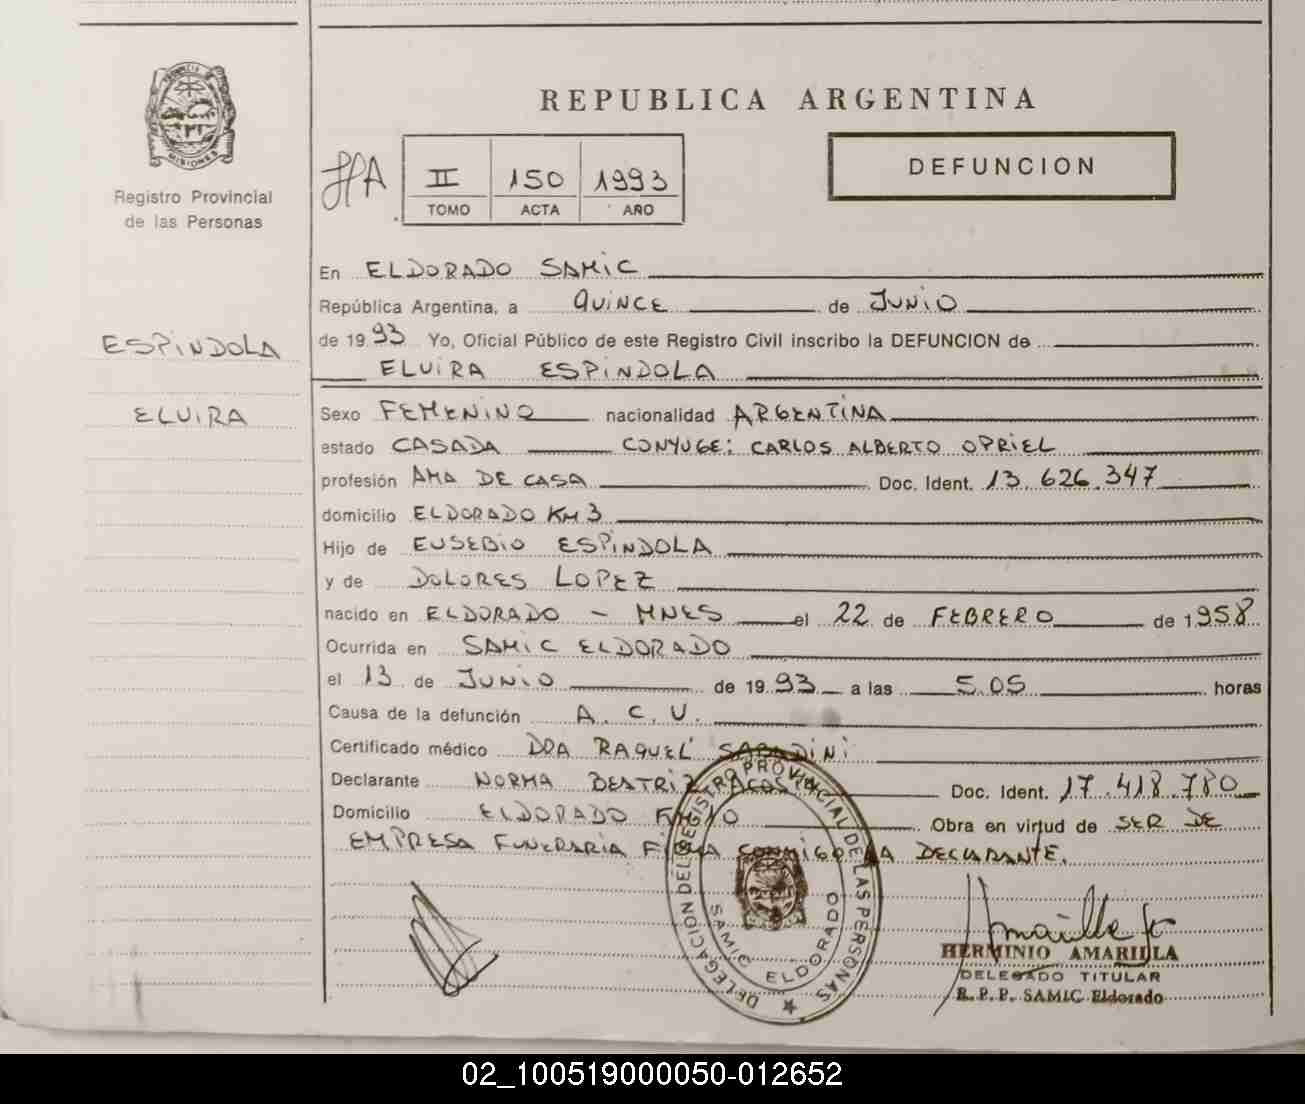 PROVINCIA DE
MISIONES
Registro Provincial
de las Personas
ESPINDOLA
ELVIRA
REPUBLICA ARGENTINA
II 150 1993
TOMO ACTA AÑO
DEFUNCION
En ELDORADO SAMIC
República Argentina, a QUINCE de JUNIO
de 1993 Yo, Oficial Público de este Registro Civil inscribo la DEFUNCION de
ELVIRA ESPINDOLA
Sexo FEMENINO nacionalidad ARGENTINA
estado CASADA CONYUGE: CARLOS ALBERTO OPRIEL
profesión AMA DE CASA Doc. Ident. 13.626.347
domicilio ELDORADO KM 3
Hijo de EUSEBIO ESPINDOLA
y de DOLORES LOPEZ
nacido en ELDORADO - MNES el 22 de FEBRERO de 1.958
Ocurrida en SAMIC ELDORADO
el 13 de JUNIO de 1993 a las 5.05 horas
Causa de la defunción A.C.V.
Certificado médico DRA RAQUEL SABADINI
Declarante NORMA BEATRIZ Doc. Ident. 17.418.780
Domicilio ELDORADO Obra en virtud de SER DE
EMPRESA FUNERARIA FIRMA CONMIGO LA DECLARANTE.
DELEGACION DEL REGISTRO PROVINCIAL DE LAS PERSONAS
SAMIC ELDORADO
HERMINIO AMARILLA
DELEGADO TITULAR
R.P.P. SAMIC Eldorado
02_100519000050-012652